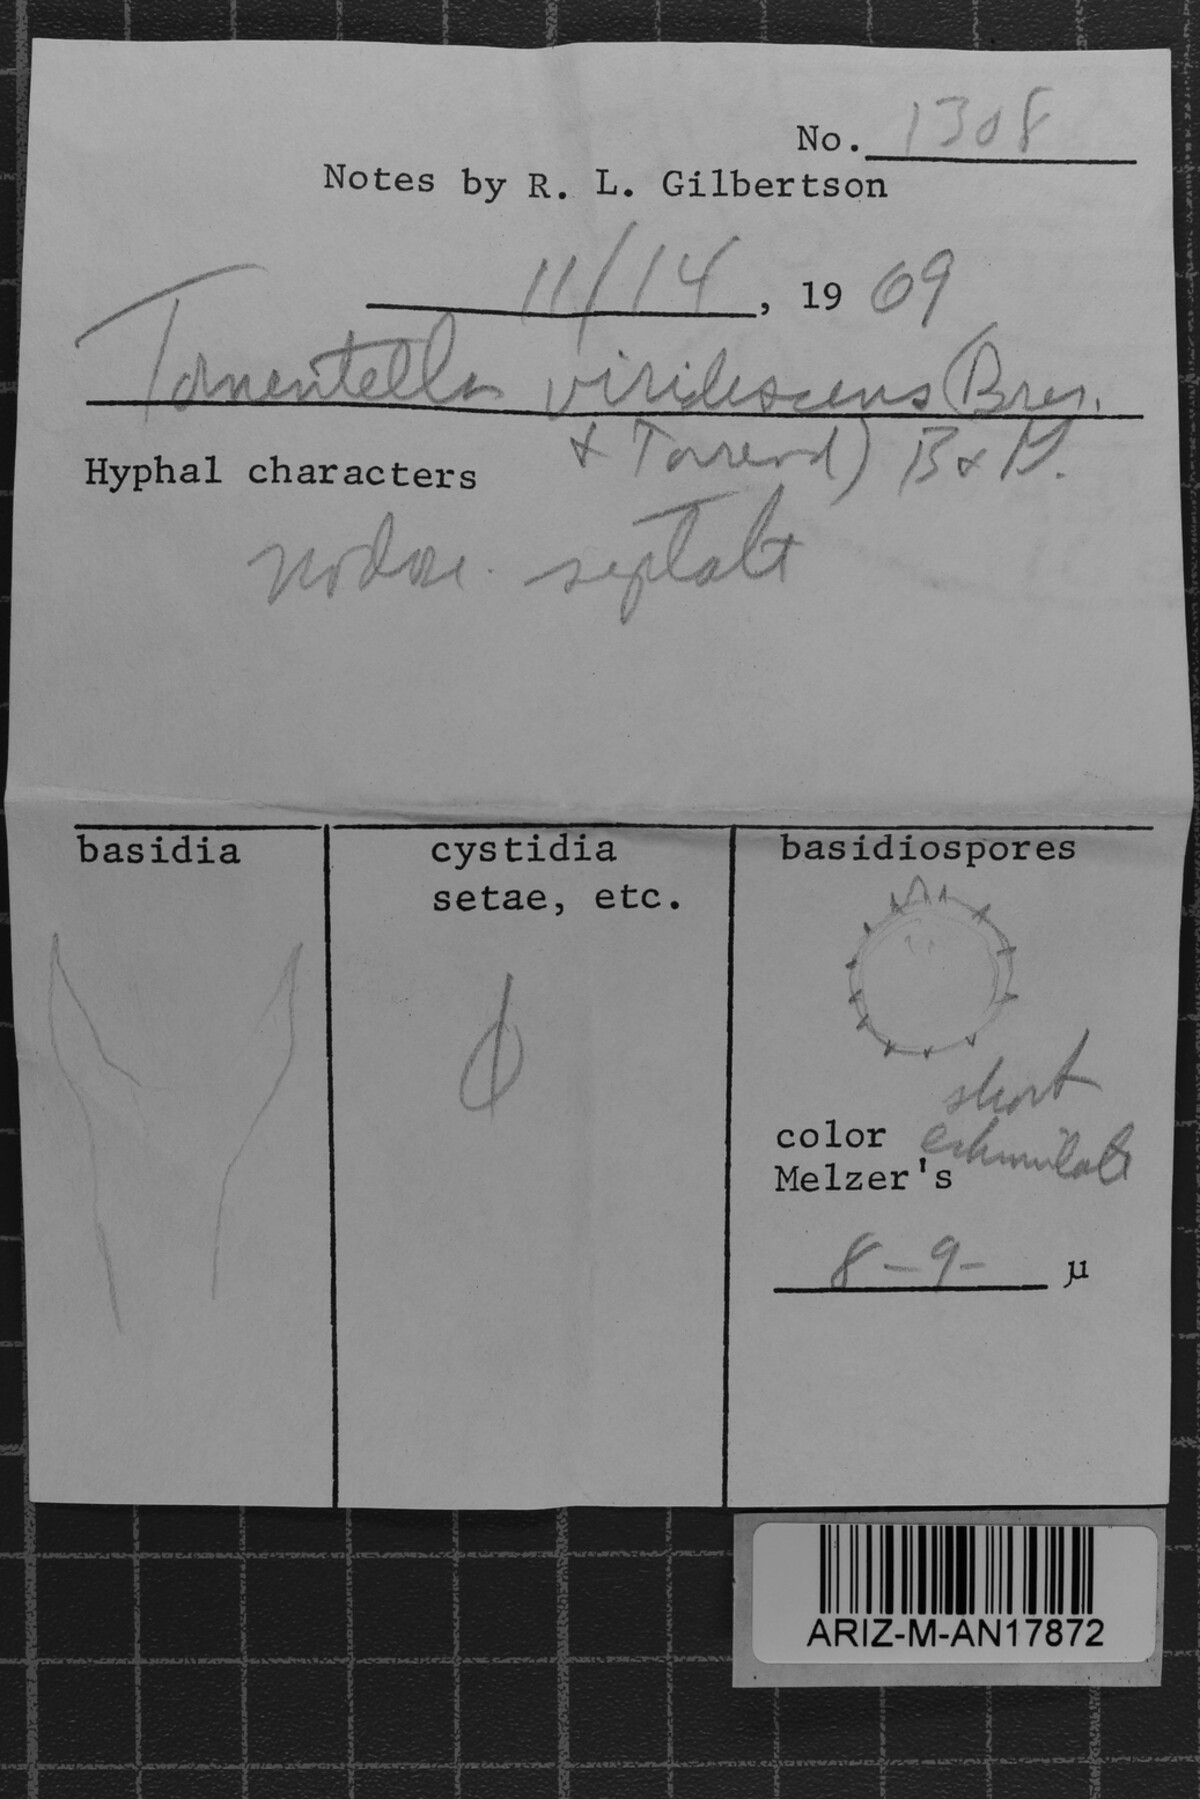 No. 1308
Notes by R. L. Gilbertson
11/14, 19 69
Tomentella viridescens (Bres.
& Torrend) B & G.
Hyphal characters
nodose - septate
basidia
cystidia
setae, etc.
basidiospores
short
color echinulate
Melzer's
8-9- µ
ARIZ-M-AN17872